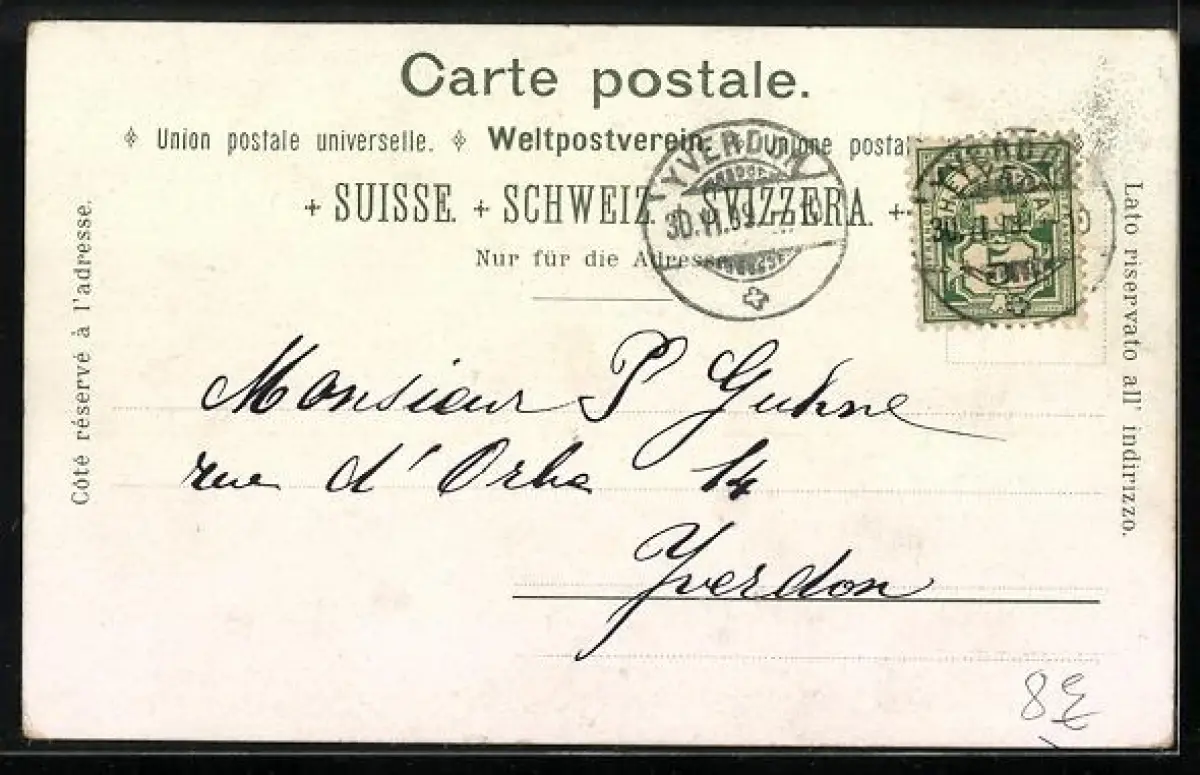 Carte postale.
Union postale universelle. Weltpostverein. Unione postale
+ SUISSE. + SCHWEIZ. SVIZZERA. +
Nur für die Adresse
Côté réservé à l'adresse.
Lato riservato all' indirizzo.
YVERDON
30.VI.99
YVERD
30.VI.
Monsieur P Guhne
rue d'Orbe 14
Yverdon
8